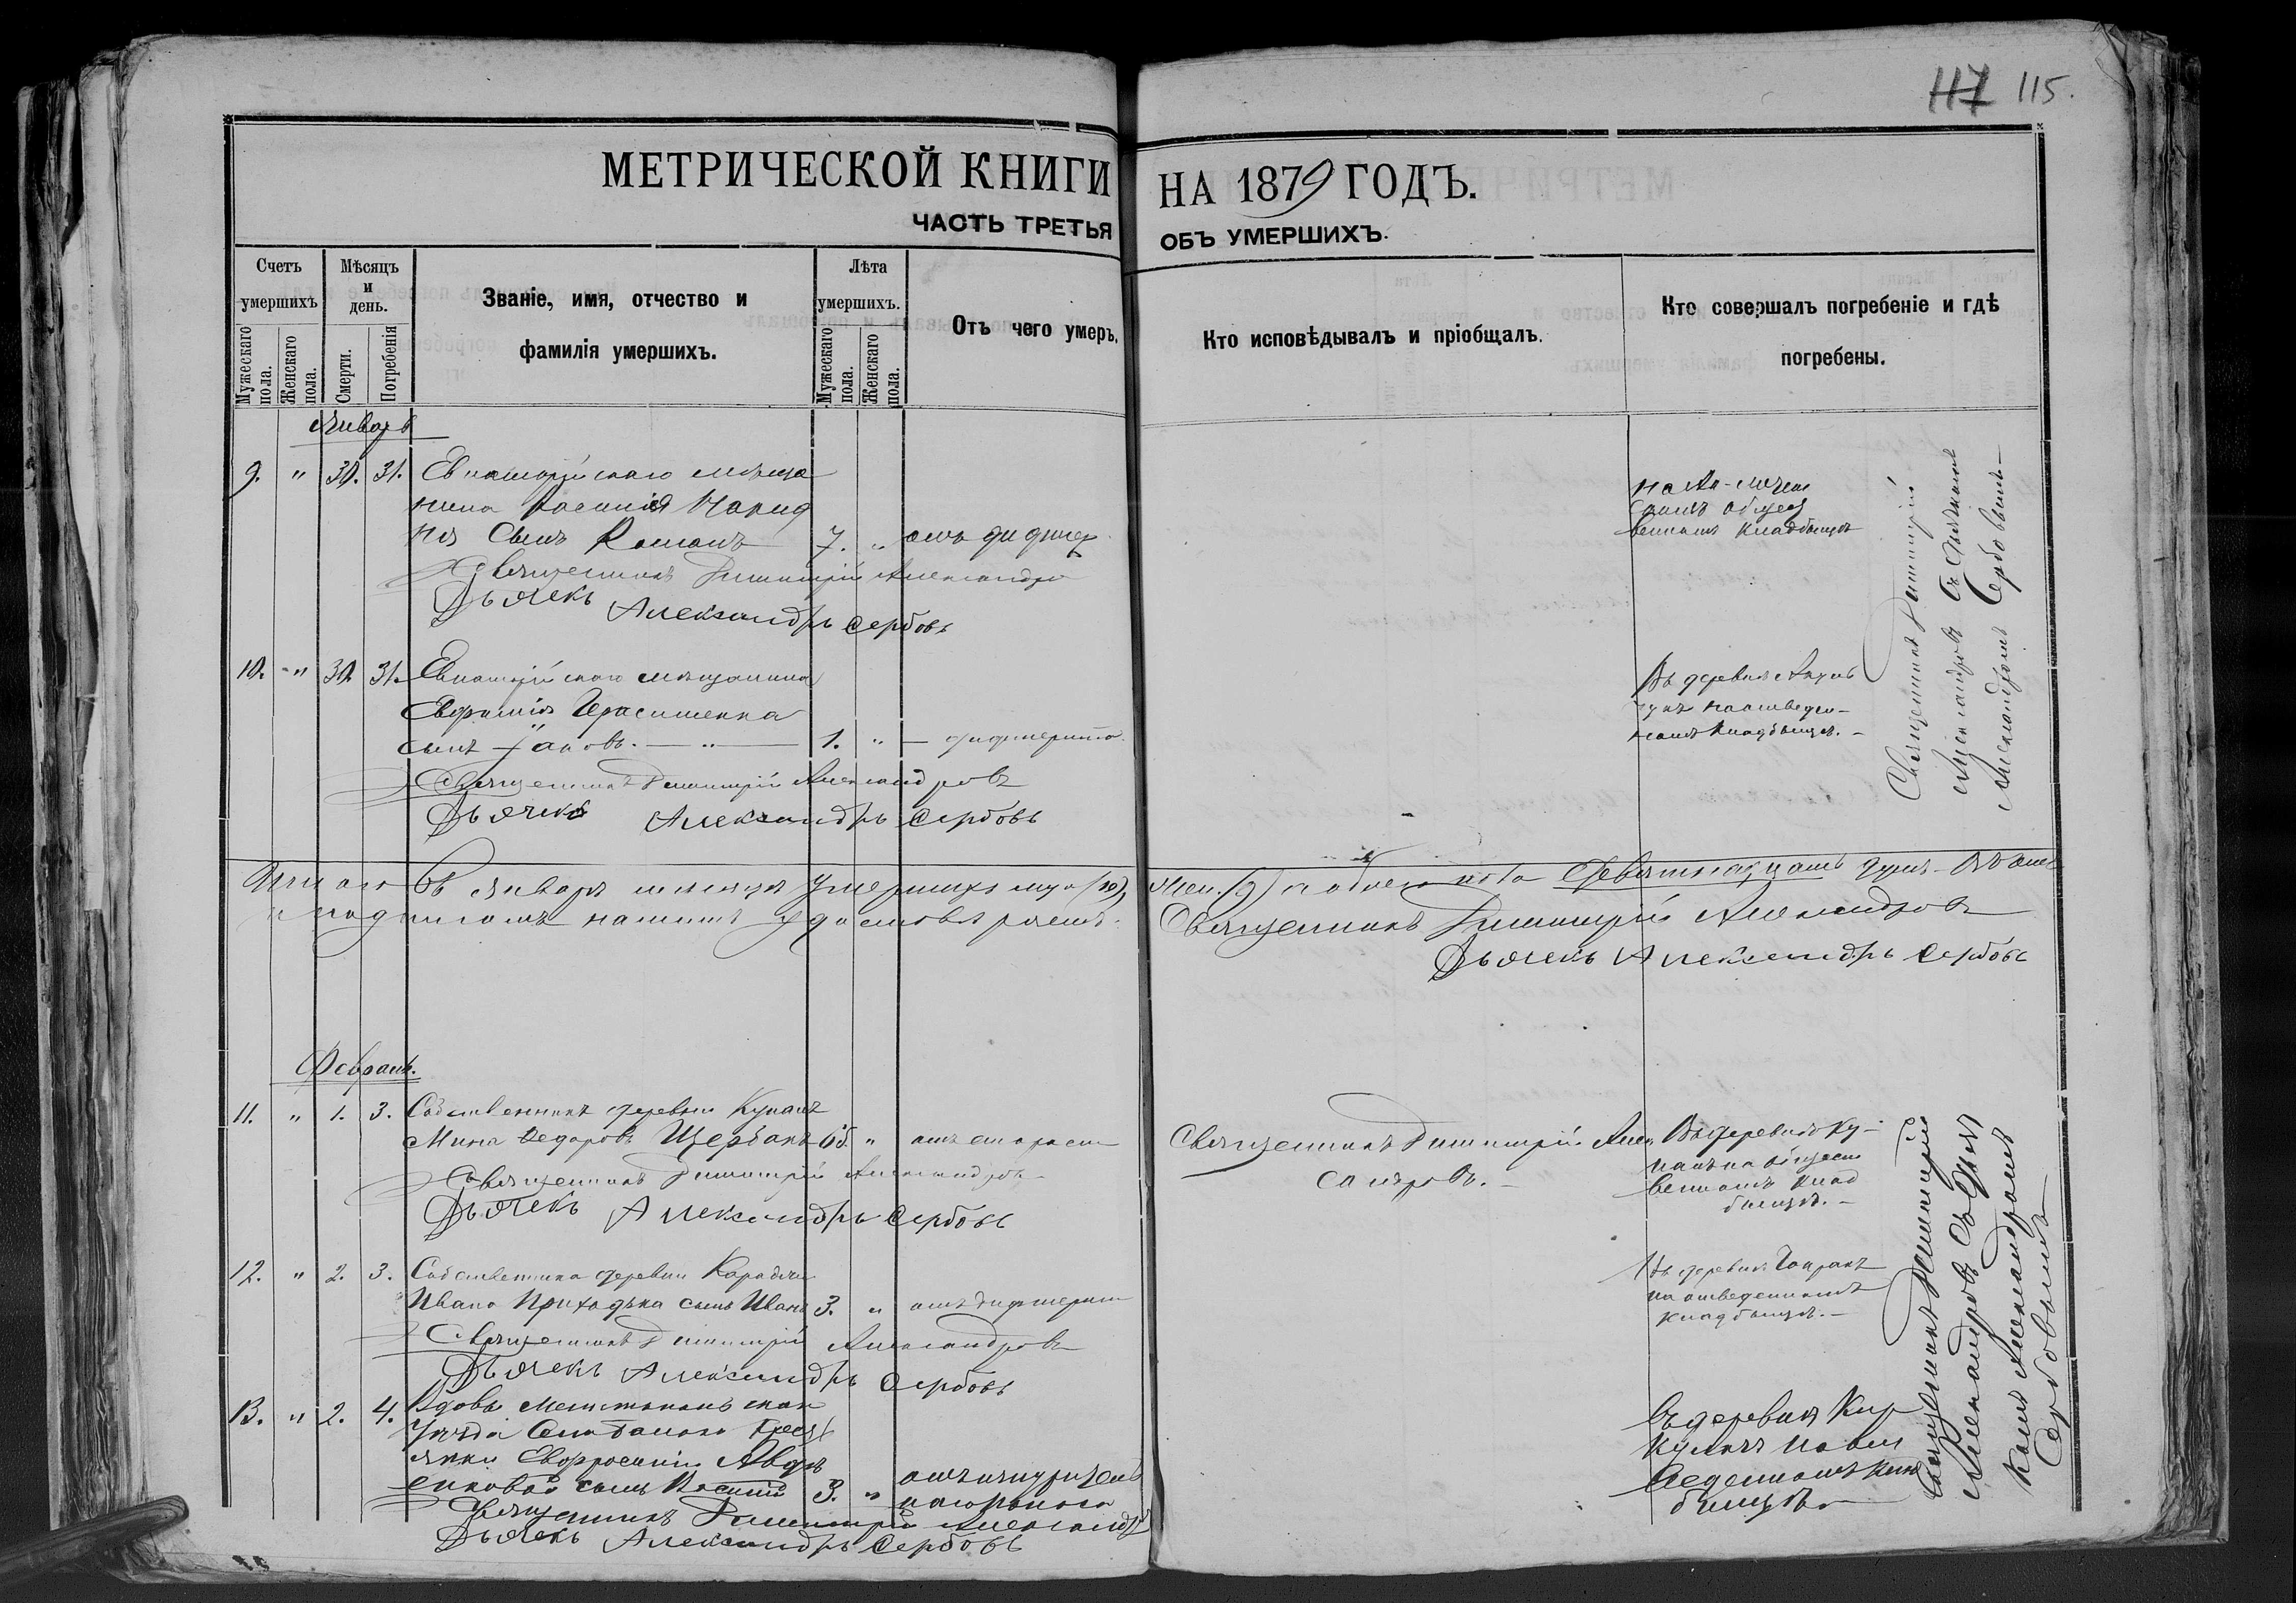 117 115.
МЕТРИЧЕСКОЙ КНИГИ НА 1879 ГОДЪ.
ЧАСТЬ ТРЕТЬЯ ОБЪ УМЕРШИХЪ.
Счетъ умершихъ
Мужескаго пола.
Женскаго пола.
Мѣсяцъ и день.
Смерти.
Погребенія
Званіе, имя, отчество и фамилія умершихъ.
Лѣта умершихъ.
Мужескаго пола.
Женскаго пола.
Отъ чего умеръ.
Кто исповѣдывалъ и пріобщалъ.
Кто совершалъ погребеніе и гдѣ погребены.
Январь
9. " 30. 31. Евпаторійскаго мѣща
нина
сынъ Романъ 7. " отъ
Священникъ Димитрій Александро
Дьячекъ Александръ Сербовъ
на Ак-мече
обществ
венномъ кладбищѣ
Священникъ Димитрій
Александровъ съ Дьячкомъ
Александромъ Сербовымъ
10. " 30. 31. Евпаторійскаго мѣщанина
Герасименка
сынъ Іаковъ. 1. " дифтерита.
Священникъ Димитрій Александровъ
Дьячекъ Александръ Сербовъ
Въ деревнѣ
на отведен
номъ кладбищѣ.
Итого въ январѣ мѣсяцѣ умершихъ муж. (10), жен. (9) а обоего пола девятнадцать душъ. Въ чемъ
и подписомъ нашимъ удостовѣряемъ. Священникъ Димитрій Александровъ
Дьячекъ Александръ Сербовъ
Февраль.
11. " 1. 3. Собственникъ деревни
Мина Федоровъ Щербакъ 65. " отъ старости
Священникъ Димитрій Александровъ
Дьячекъ Александръ Сербовъ
Священникъ Димитрій Алек
сандровъ.
Въ деревнѣ Ку-
на общест
венномъ клад
бищѣ.
12. " 2. 3. Собственника деревни
Ивана Приходька сынъ Иванъ 3. " отъ дифтерит
Священникъ Димитрій Александровъ
Дьячекъ Александръ Сербовъ
Въ деревнѣ
на отведенномъ
кладбищѣ.
Священникъ Димитрій
Александровъ съ Дьяч
комъ Александромъ
Сербовымъ
13. " 2. 4. Вдовы
Уѣзда крест
янки Евфросиніи Авдѣ
енковой сынъ 3. "
Священникъ Димитрій Александръ
Дьячекъ Александръ Сербовъ
Въ деревнѣ Кир
на от
веденномъ клад
бищѣ